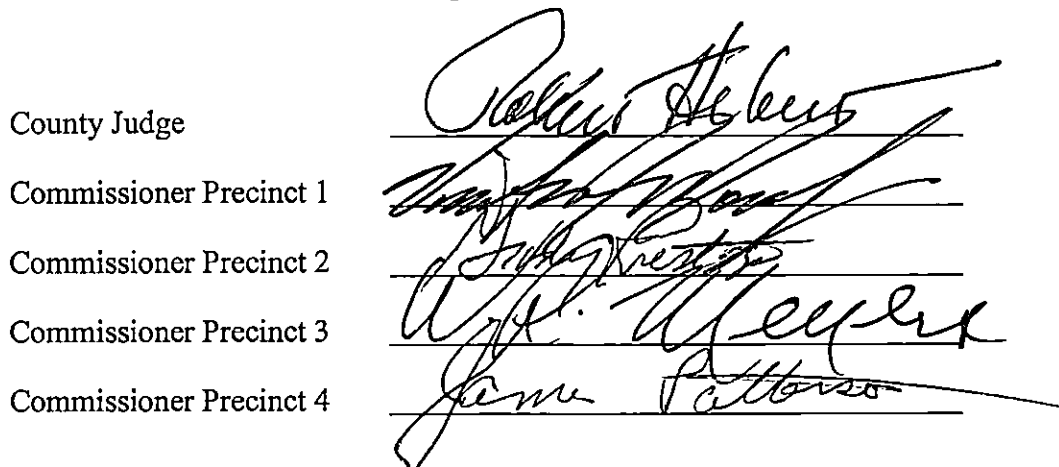 County Judge Robert Hebert
Commissioner Precinct 1
Commissioner Precinct 2 Grady Prestage
Commissioner Precinct 3 W. A. Meyers
Commissioner Precinct 4 James Patterson